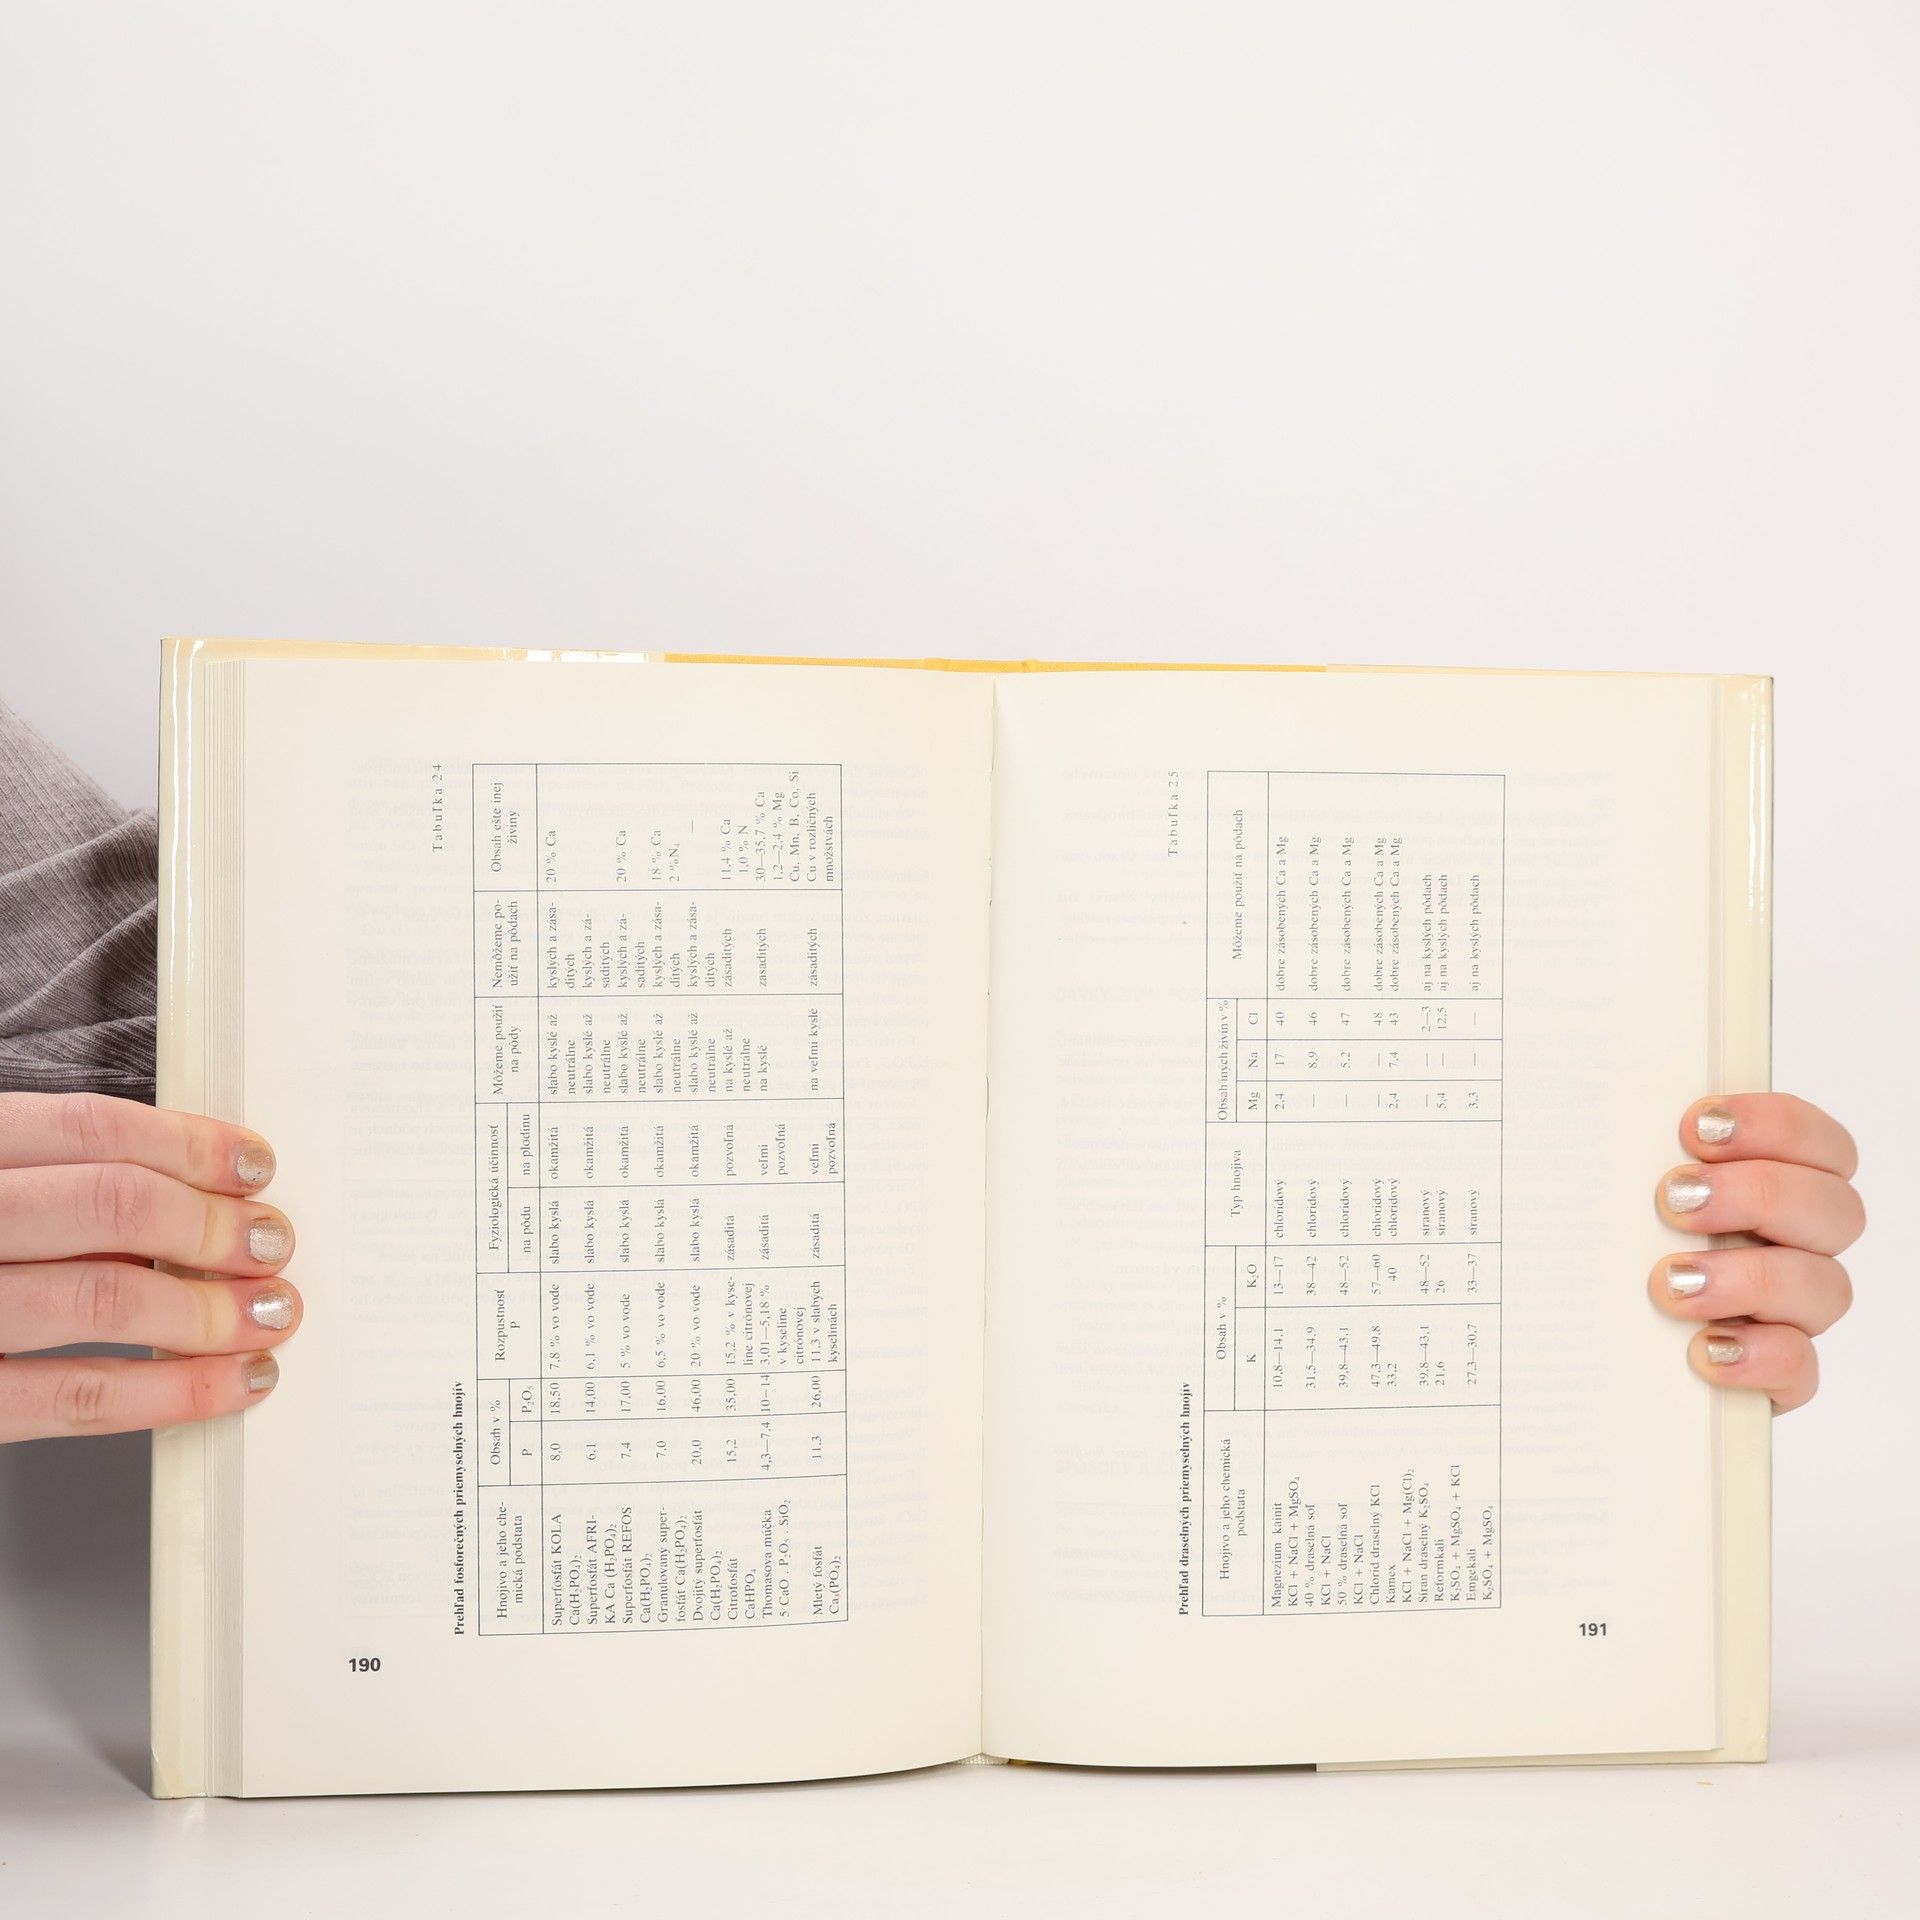 Tabuľka 24
Prehľad fosforečných priemyselných hnojív
Hnojivo a jeho che- Obsah v % Rozpustnosť Fyziologická účinnosť Môžeme použiť Nemôžeme po- Obsah ešte inej
mická podstata P P₂O₅ P na pôdu na plodinu na pôdy užiť na pôdach živiny
Superfosfát KOLA 8,0 18,50 7,8 % vo vode slabo kyslá okamžitá slabo kyslé až kyslých a zása- 20 % Ca
Ca(H₂PO₄)₂ neutrálne ditých
Superfosfát AFRI- 6,1 14,00 6,1 % vo vode slabo kyslá okamžitá slabo kyslé až kyslých a zá-
KA Ca (H₂PO₄)₂ neutrálne saditých
Superfosfát REFOS 7,4 17,00 5 % vo vode slabo kyslá okamžitá slabo kyslé až kyslých a zá- 20 % Ca
Ca(H₂PO₄)₂ neutrálne saditých
Granulovaný super- 7,0 16,00 6,5 % vo vode slabo kyslá okamžitá slabo kyslé až kyslých a zása- 18 % Ca
fosfát Ca(H₂PO₄)₂ neutrálne ditých 2 %N₄
Dvojitý superfosfát 20,0 46,00 20 % vo vode slabo kyslá okamžitá slabo kyslé až kyslých a zása- —
Ca(H₂PO₄)₂ neutrálne ditých
Citrofosfát 15,2 35,00 15,2 % v kyse- zásaditá pozvoľná na kyslé až zásaditých 11,4 % Ca
CaHPO₄ line citrónovej neutrálne 1,0 % N
Thomasova múčka 4,3—7,4 10—14 3,01—5,18 % zásaditá veľmi na kyslé zasaditých 30—35,7 % Ca
5 CaO . P₂O₅ . SiO₂ v kyseline pozvoľná 1,2—2,4 % Mg
citrónovej Cu, Mn, B, Co, Si
Mletý fosfát 11,3 26,00 11,3 v slabých zásaditá veľmi na veľmi kyslé zásaditých Cu v rozličných
Ca₃(PO₄)₂ kyselinách pozvoľná množstvách
190
Tabuľka 25
Prehľad draselných priemyselných hnojív
Hnojivo a jeho chemická Obsah v % Typ hnojiva Obsah iných živín v % Môžeme použiť na pôdach
podstata K K₂O Mg Na Cl
Magnezium kainit 10,8—14,1 13—17 chloridový 2,4 17 40 dobre zásobených Ca a Mg
KCl + NaCl + MgSO₄
40 % draselná soľ 31,5—34,9 38—42 chloridový — 8,9 46 dobre zásobených Ca a Mg
KCl + NaCl
50 % draselná soľ 39,8—43,1 48—52 chloridový — 5,2 47 dobre zásobených Ca a Mg
KCl + NaCl
Chlorid draselný KCl 47,3—49,8 57—60 chloridový — — 48 dobre zásobených Ca a Mg
Kamex 33,2 40 chloridový 2,4 7,4 43 dobre zásobených Ca a Mg
KCl + NaCl + Mg(Cl)₂
Síran draselný K₂SO₄ 39,8—43,1 48—52 síranový — — 2—3 aj na kyslých pôdach
Reformkali 21,6 26 síranový 5,4 — 12,5 aj na kyslých pôdach
K₂SO₄ + MgSO₄ + KCl
Emgekali 27,3—30,7 33—37 síranový 3,3 — — aj na kyslých pôdach
K₂SO₄ + MgSO₄
191